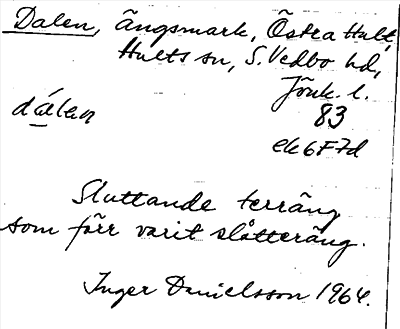 Dalen, ängsmark, Östra Hult,
Hults sn, S. Vedbo hd,
Jönk. l.
dálen
83
ek 6F7d
Sluttande terräng
som förr varit slåtteräng.
Inger Danielsson 1964.